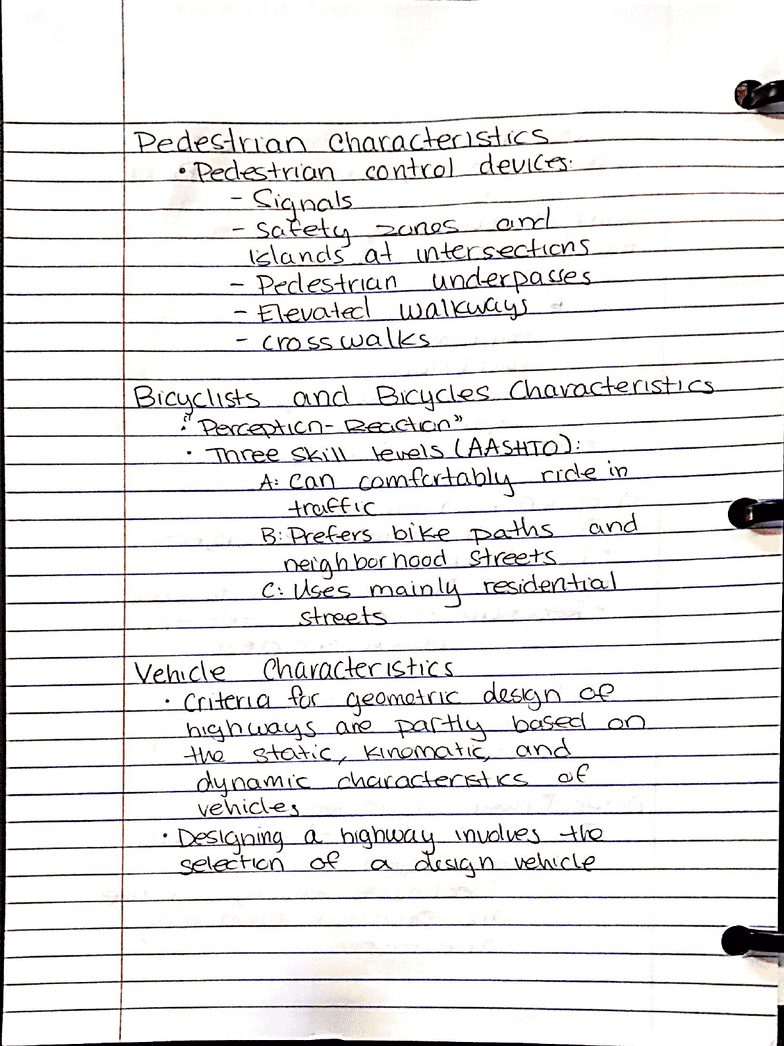 Pedestrian Characteristics
• Pedestrian control devices:
- Signals
- Safety zones and
islands at intersections
- Pedestrian underpasses
- Elevated walkways
- crosswalks
Bicyclists and Bicycles Characteristics
• "Perception-Reaction"
• Three skill levels (AASHTO):
A: Can comfortably ride in
traffic
B: Prefers bike paths and
neighborhood streets
C: Uses mainly residential
streets
Vehicle Characteristics
• Criteria for geometric design of
highways are partly based on
the static, kinematic, and
dynamic characteristics of
vehicles
• Designing a highway involves the
selection of a design vehicle